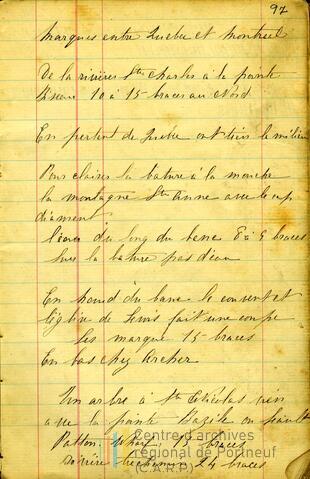 97
Marques entre Quebec et Montreal
De la rivières Ste Charles à le pointe
10 à 15 braces au Nord
En pertent de Quebec ont tien le milieu
Pour claires la bature à la manche
la montagne Ste Anne avec le cap
diament
l'eau du long du banc 8 à 9 braces
Sur la bature pas d'eau
En haud du banc le couvent et
l'église de Levis fait une coupe
les marque 15 braces
En bas chez Archer
Un arbre à St Nicolas vien
avec la pointe Bazile
15 braces
24 braces
Centre d'archives
régional de Portneuf
(C.A.R.P)